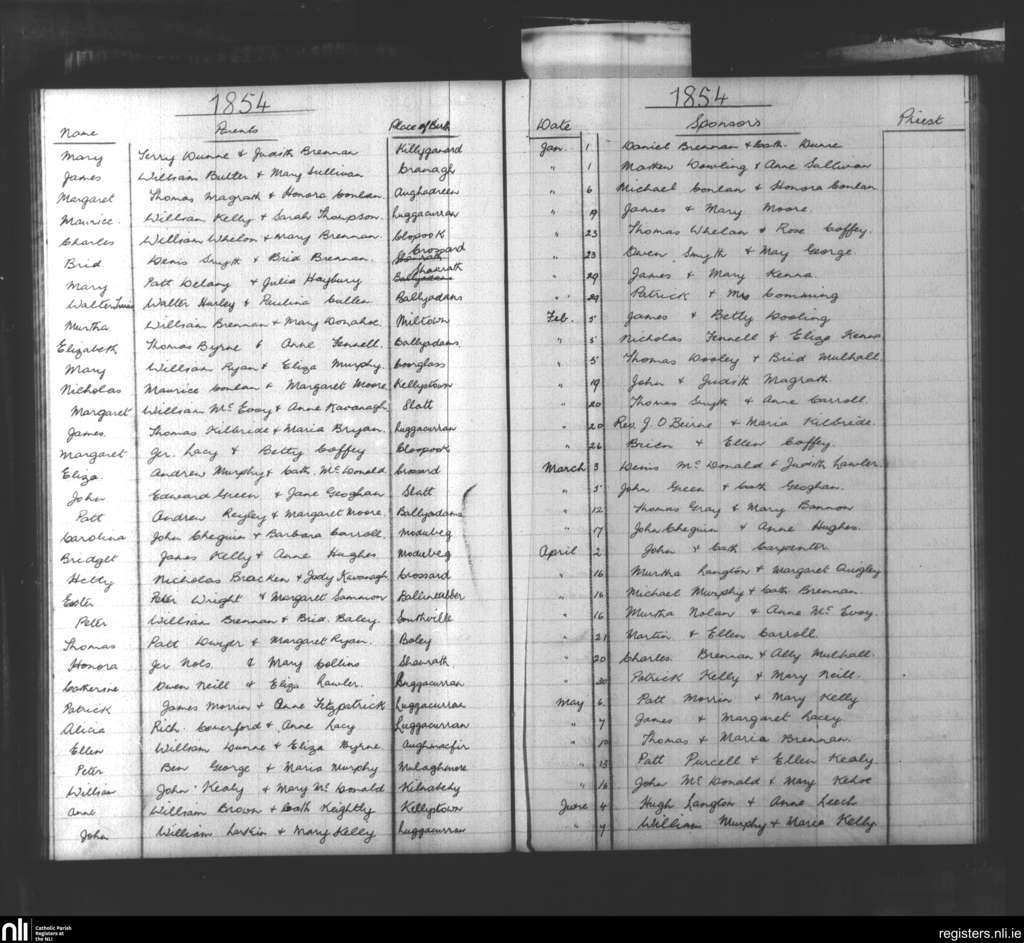 1854
Name Parents Place of Birth
Mary Terry Dunne & Judith Brennan Killyganard
James William Butler & Mary Sullivan Cranagh
Margaret Thomas Magrath & Honora Conlan Aughadreen
Maurice William Kelly & Sarah Thompson Luggacurran
Charles William Whelon & Mary Brennan Clopook
Brid Denis Smyth & Brid Brennan Crossard
Mary Patt Delany & Julia Haybury Shanrath
Walter Walter Harley & Paulina Cullen Ballyadams
Murtha William Brennan & Mary Donahoe Miltown
Elizabeth Thomas Byrne & Anne Fennell Ballyadams
Mary William Ryan & Eliza Murphy Coorglass
Nicholas Maurice Conlan & Margaret Moore Kellystown
Margaret William McEvoy & Anne Kavanagh Slatt
James Thomas Kilbride & Maria Bryan Luggacurran
Margaret Jer. Lacy & Betty Caffey Cloopook
Eliza Andrew Murphy & Cath. McDonald Crosard
John Edward Green & Jane Geoghan Slatt
Patt Andrew Reyley & Margaret Moore Ballyadams
Carolina John Cheguin & Barbara Carroll Modubeg
Bridget James Kelly & Anne Hughes Modubeg
Hetty Nicholas Bracken & Judy Kavanagh Crossard
Easter Peter Wright & Margaret Sammon Ballintubber
Peter William Brennan & Brid. Baley Southville
Thomas Patt Dwyer & Margaret Ryan Boley
Honora Jer Nols & Mary Collins Shanrath
Catherine Owen Neill & Eliza Lawler Luggacurran
Patrick James Morrin & Anne Fitzpatrick Luggacurran
Alicia Rich. Comerford & Anne Lacy Luggacurran
Ellen William Dunne & Eliza Byrne Aughnacfir
Peter Ben George & Maria Murphy Mulaghmore
William John Kealy & Mary McDonald Kilnateby
Anne William Brown & Cath Keightly Kellystown
John William Larkin & Mary Kelly Luggacurran
1854
Date Sponsors Priest
Jan. 1 Daniel Brennan & Cath. Dunne
" 1 Mathew Dowling & Anne Sullivan
" 6 Michael Conlan & Honora Conlan
" 9 James & Mary Moore
" 23 Thomas Whelan & Rose Caffey
" 23 Owen Smyth & May George
" 29 James & Mary Kenna
" 29 Patrick & Mrs Comming
Feb. 5 James & Betty Dooling
" 5 Nicholas Fennell & Eliza Kenna
" 5 Thomas Dooley & Brid Mulhall
" 19 John & Judith Magrath
" 20 Thomas Smyth & Anne Carroll
" 20 Rev. J. O Beirne & Maria Kilbride
" 26 Brien & Ellen Caffey
March 3 Denis McDonald & Judith Lawler
" 5 John Green & Cath Geoghan
" 12 Thomas Gray & Mary Bannon
" 17 John Cheguin & Anne Hughes
April 2 John & Cath Carpenter
" 16 Murtha Langton & Margaret Quigley
" 16 Michael Murphy & Cath. Brennan
" 16 Murtha Nolan & Anne McEvoy
" 21 Martin & Ellen Carroll
" 20 Charles Brennan & Ally Mulhall
" 30 Patrick Kelly & Mary Neill
May 6 Patt Morrin & Mary Kelly
" 7 James & Margaret Lacey
" 10 Thomas & Maria Brennan
" 13 Patt Purcell & Ellen Kealy
" 16 John McDonald & Mary Kehoe
June 4 Hugh Langton & Anne Leech
" 7 William Murphy & Maria Kelly
nli Catholic Parish Registers at the NLI
registers.nli.ie